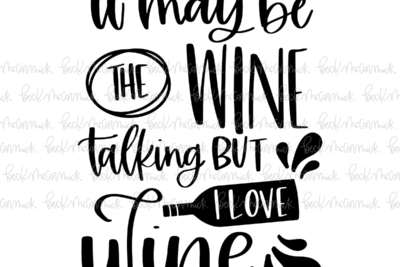 it may be
THE WINE
talking BUT
I LOVE
wine